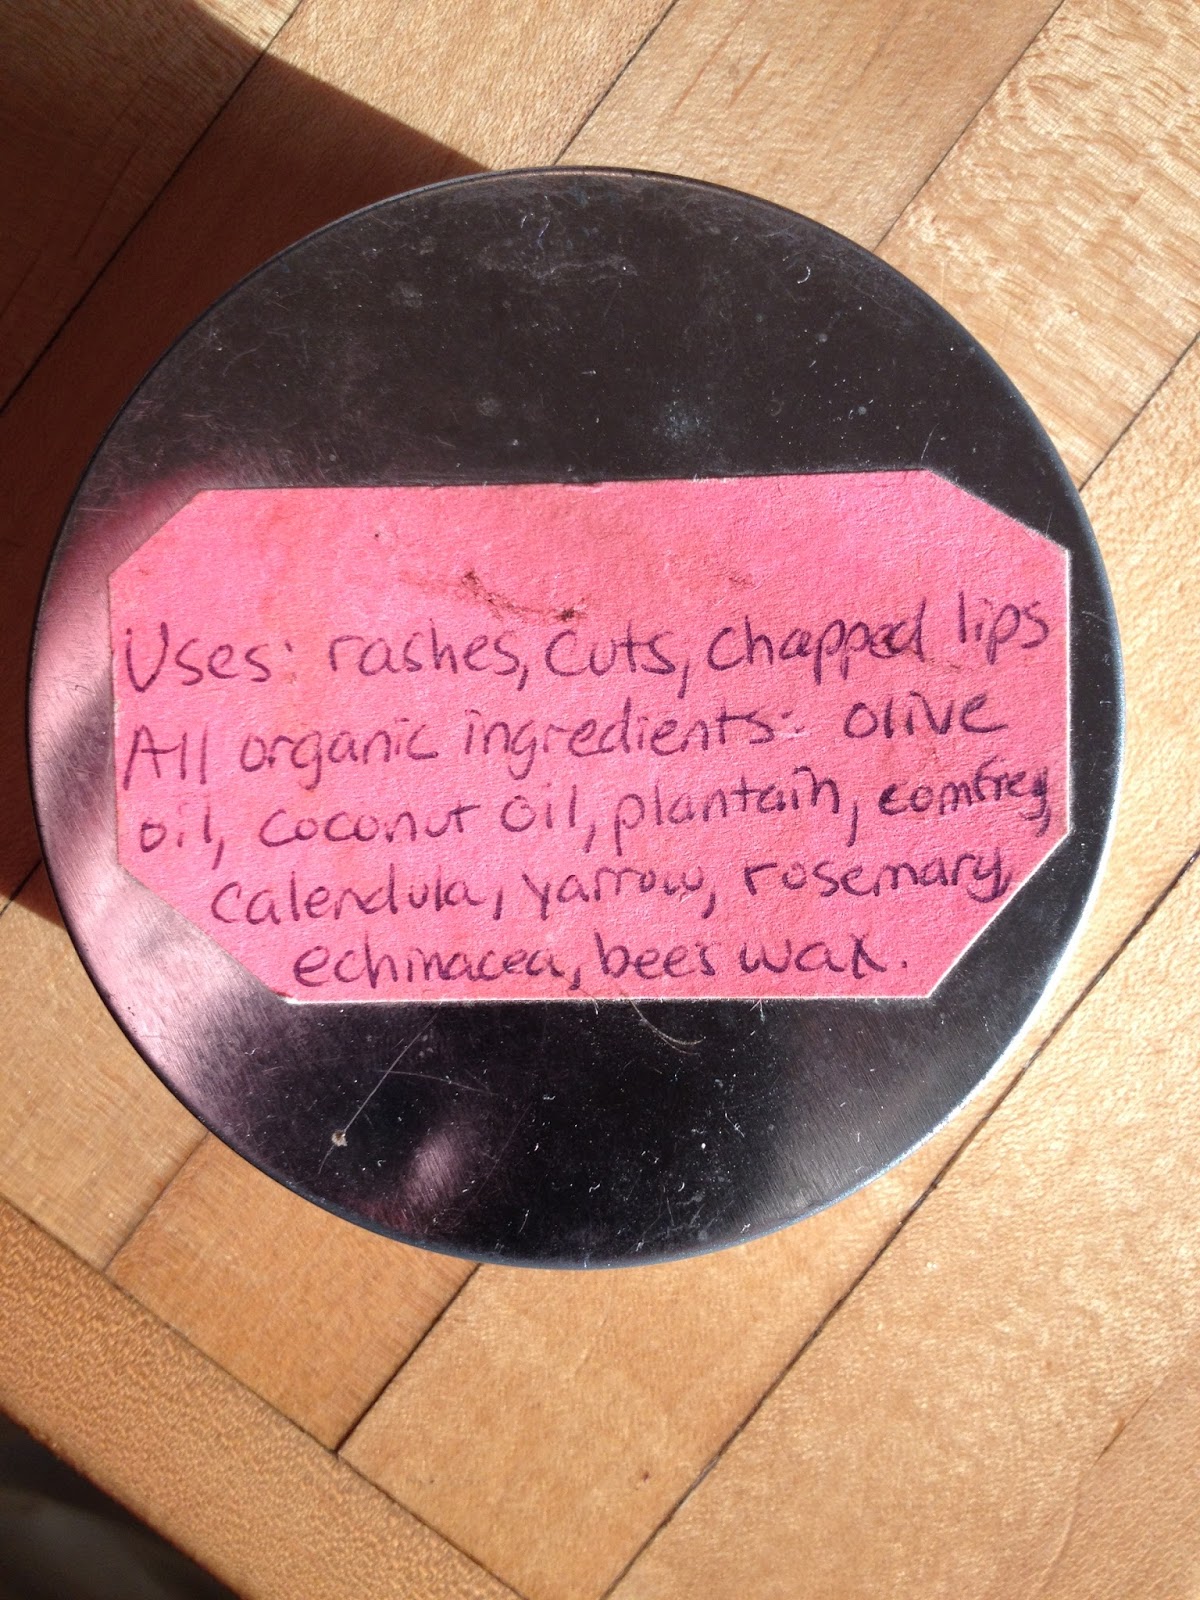 Uses: rashes, cuts, chapped lips
All organic ingredients: olive
oil, coconut oil, plantain, comfrey,
calendula, yarrow, rosemary,
echinacea, bees wax.